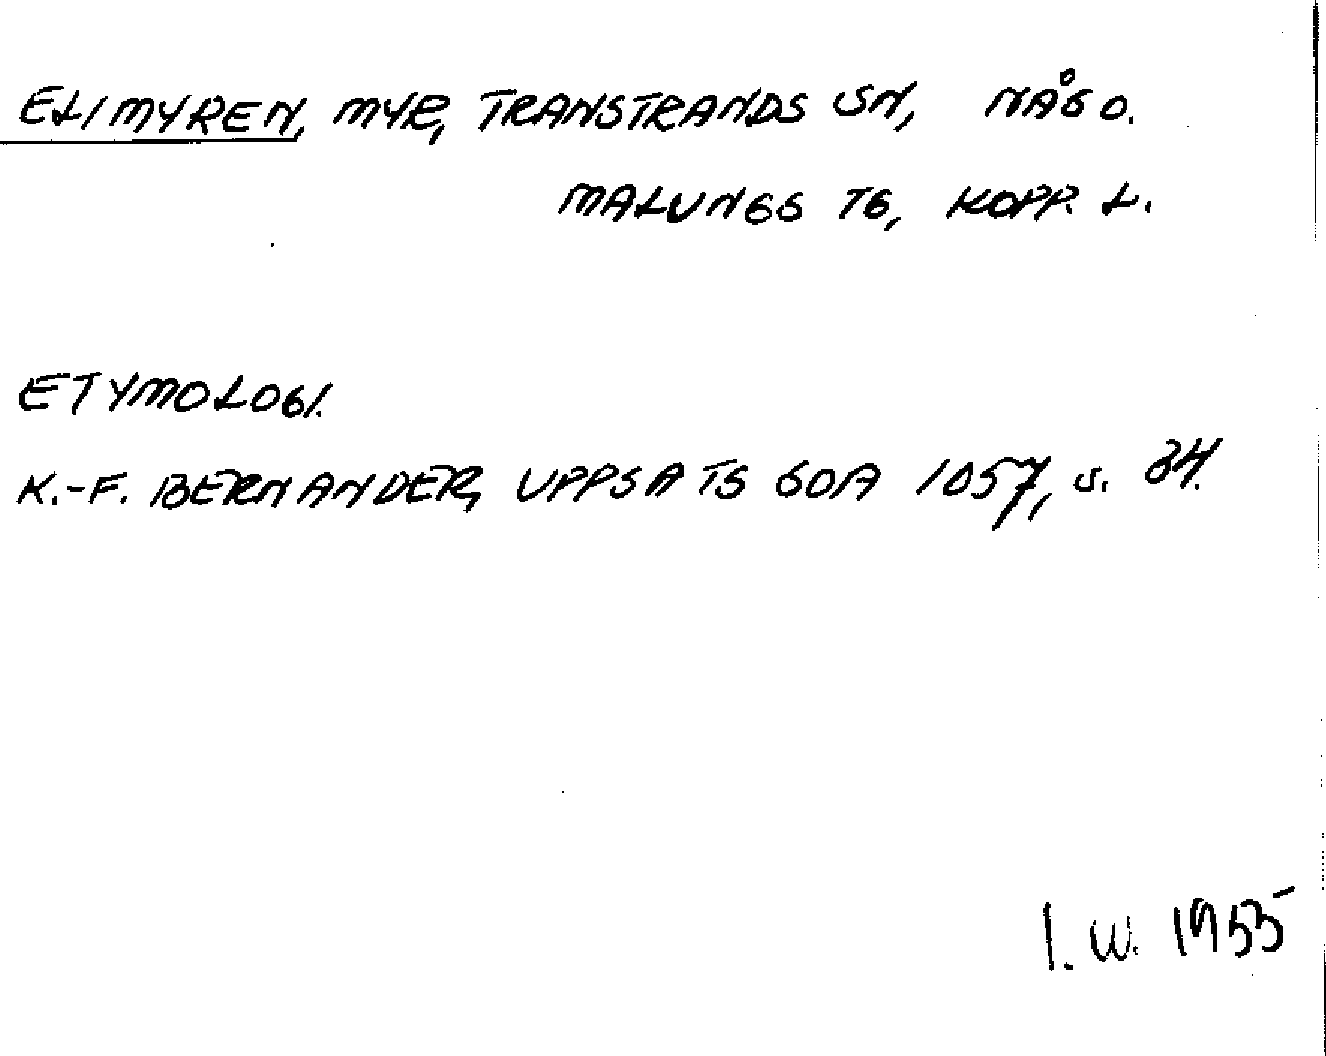 ELIMYREN, MYR, TRANSTRANDS SN, NÅGO.
MALUNGS TG, KOPP. L.
ETYMOLOGI.
K.-F. BERNANDER, UPPSATS GOA 1057, s. 34.
I. W. 1955